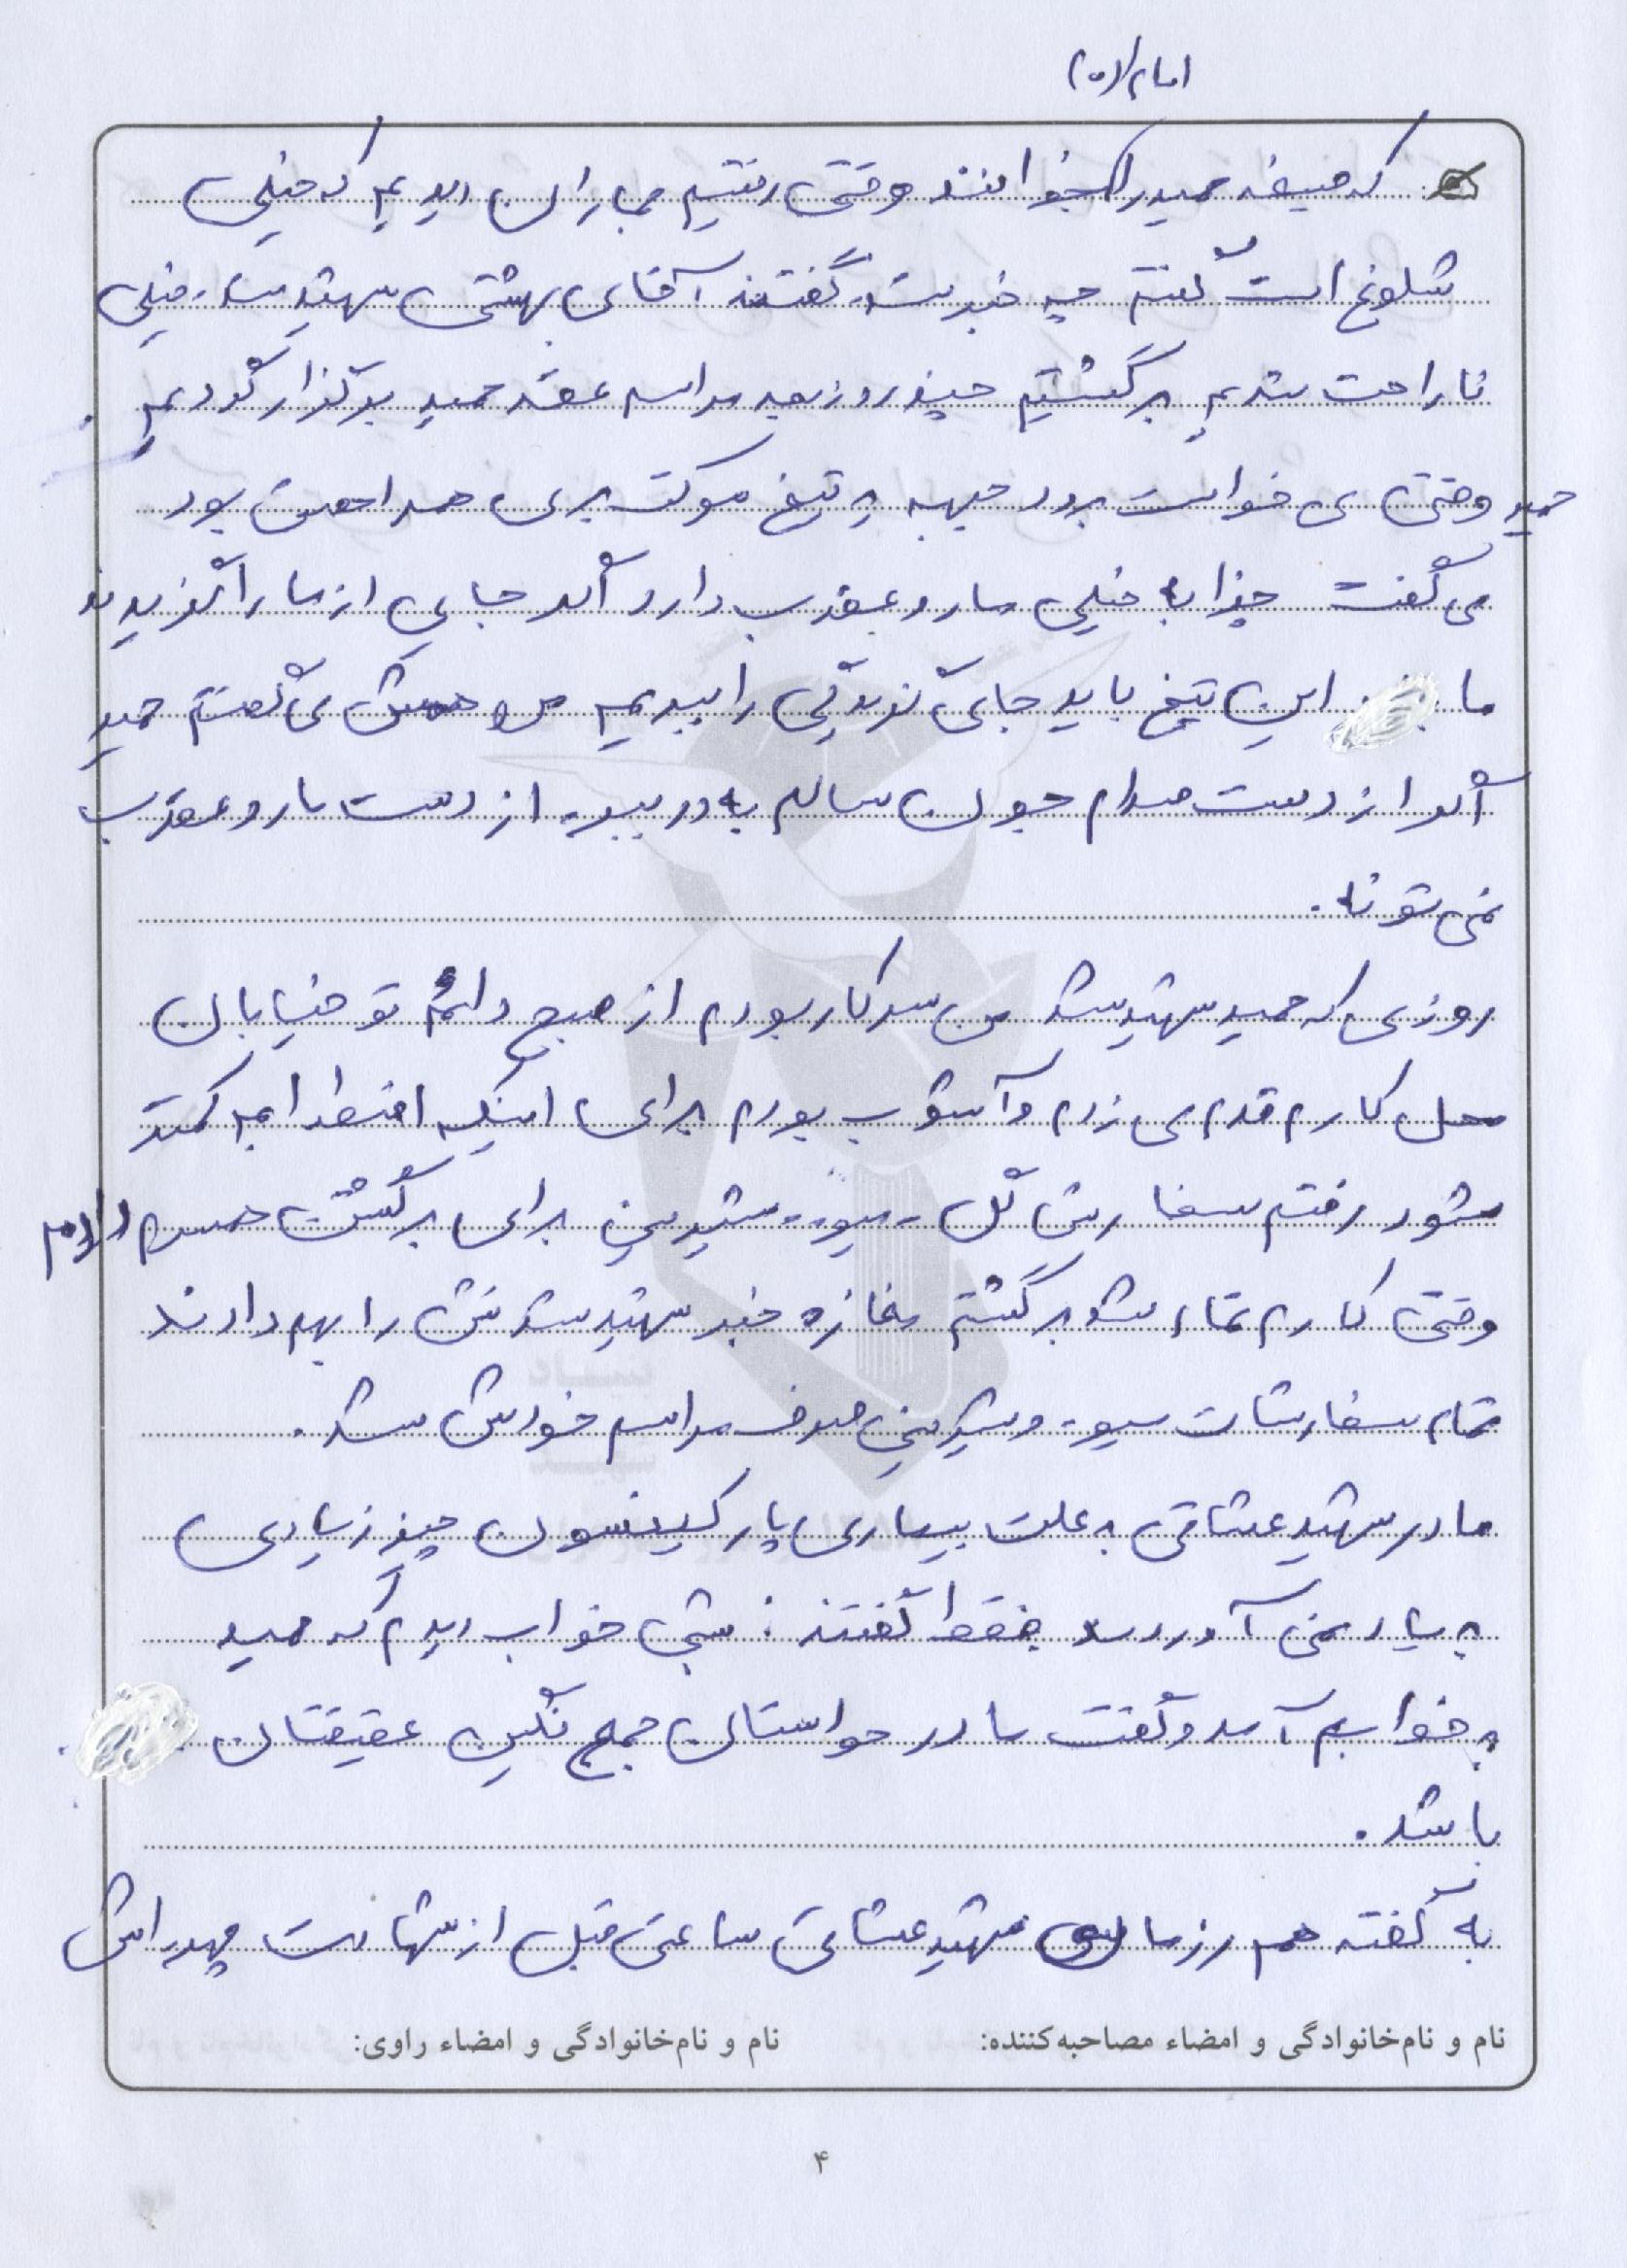 امام(ره)
که صیغه حمید را بخوانند وقتی رفتیم جماران دیدیم که خیلی
شلوغ است گفتم چه خبر شده گفتند آقای بهشتی شهید شده خیلی
ناراحت شدیم برگشتیم چند روز بعد مراسم عقد حمید برگذار کردیم.
حمید وقتی می خواست برود جبهه یه تیغ موکت بری همراهش بود
می گفت چذابه خیلی مار و عقرب دارد اگر جایی از ما را گزیدند
ما با این تیغ باید جای گزیدگی را ببریم من می گفتم حمید
اگر از دست صدام جون سالم به در ببره از دست مار و عقرب
نمی تونه.
روزی که حمید شهید شد من سر کار بودم از صبح دائم تو خیابان
محل کارم قدم می زدم و آشوب بودم برای اینکه اضطرابم کمتر
شود رفتم سفارش گل - میوه - شیرینی برای برگشت حمید دادم
وقتی کارم تمام شد برگشتم مغازه خبر شهید شدنش را بهم دادند
تمام سفارشات میوه و شیرینی صرف مراسم خودش شد.
مادر شهید عشاقی به علت بیماری پارکینسون چیز زیادی
به یاد نمی آوردند فقط گفتند: شبی خواب دیدم که حمید
به خوابم آمد و گفت مادر حواستان جمع نگین عقیقتان
باشد.
به گفته هم رزمان شهید عشاقی ساعتی قبل از شهادت
نام و نام‌خانوادگی و امضاء مصاحبه‌کننده: نام و نام‌خانوادگی و امضاء راوی:
۴